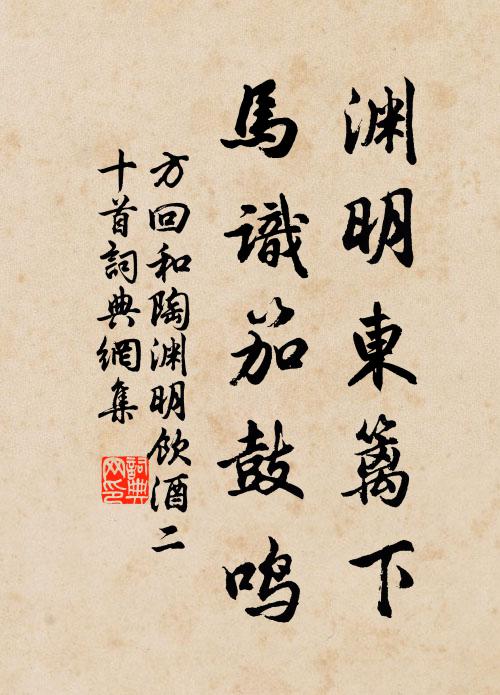 渊明東篱下
馬識笳鼓鳴
方回和陶渊明飲酒二
十首詞典網集
詞典
网印